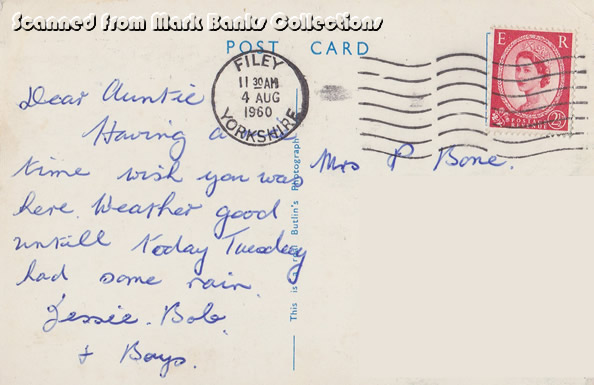 Scanned from Mark Banks Collections
POST CARD
E R
FILEY
11 30AM
4 AUG
1960
YORKSHIRE
POSTAGE
REVENUE
2½
Dear Auntie
Having a
time wish you was
here. Weather good
untill today Tuesday
had some rain.
Jessie. Bob
+ Boys.
Mrs P Bone.
This is a Butlin's Photograph